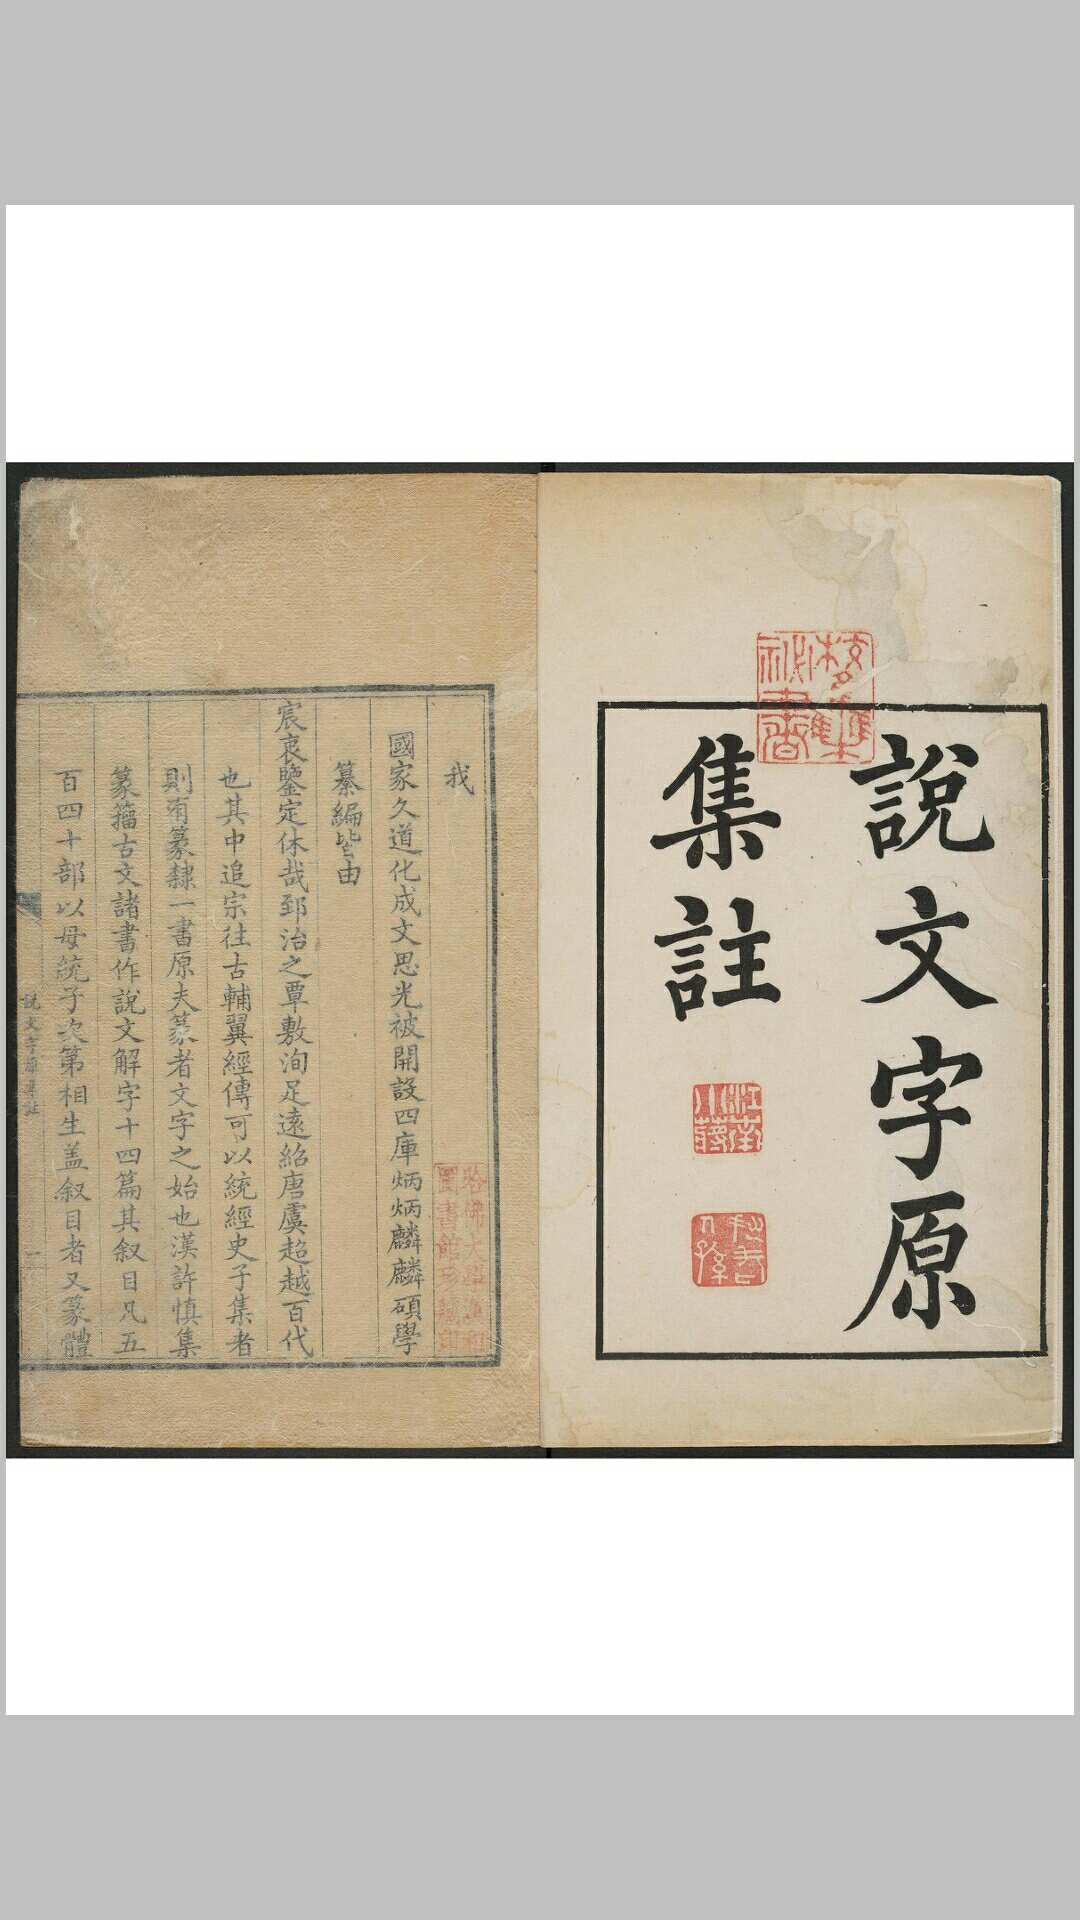 說文字原
集註
我
國家久道化成文思光被開設四庫炳炳麟麟碩學
纂編皆由
宸衷鑒定休哉郅治之覃敷洵足遠紹唐虞超越百代
也其中追宗往古輔翼經傳可以統經史子集者
則有篆隸一書原夫篆者文字之始也漢許慎集
篆籀古文諸書作說文解字十四篇其叙目凡五
百四十部以母統子次第相生盖叙目者又篆體
說文字原集註